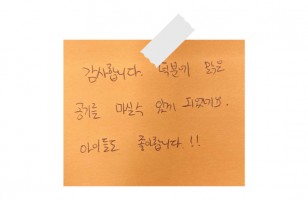 감사합니다. 덕분에 맑은
공기를 마실수 있게 되었어요.
아이들도 좋아합니다.!!